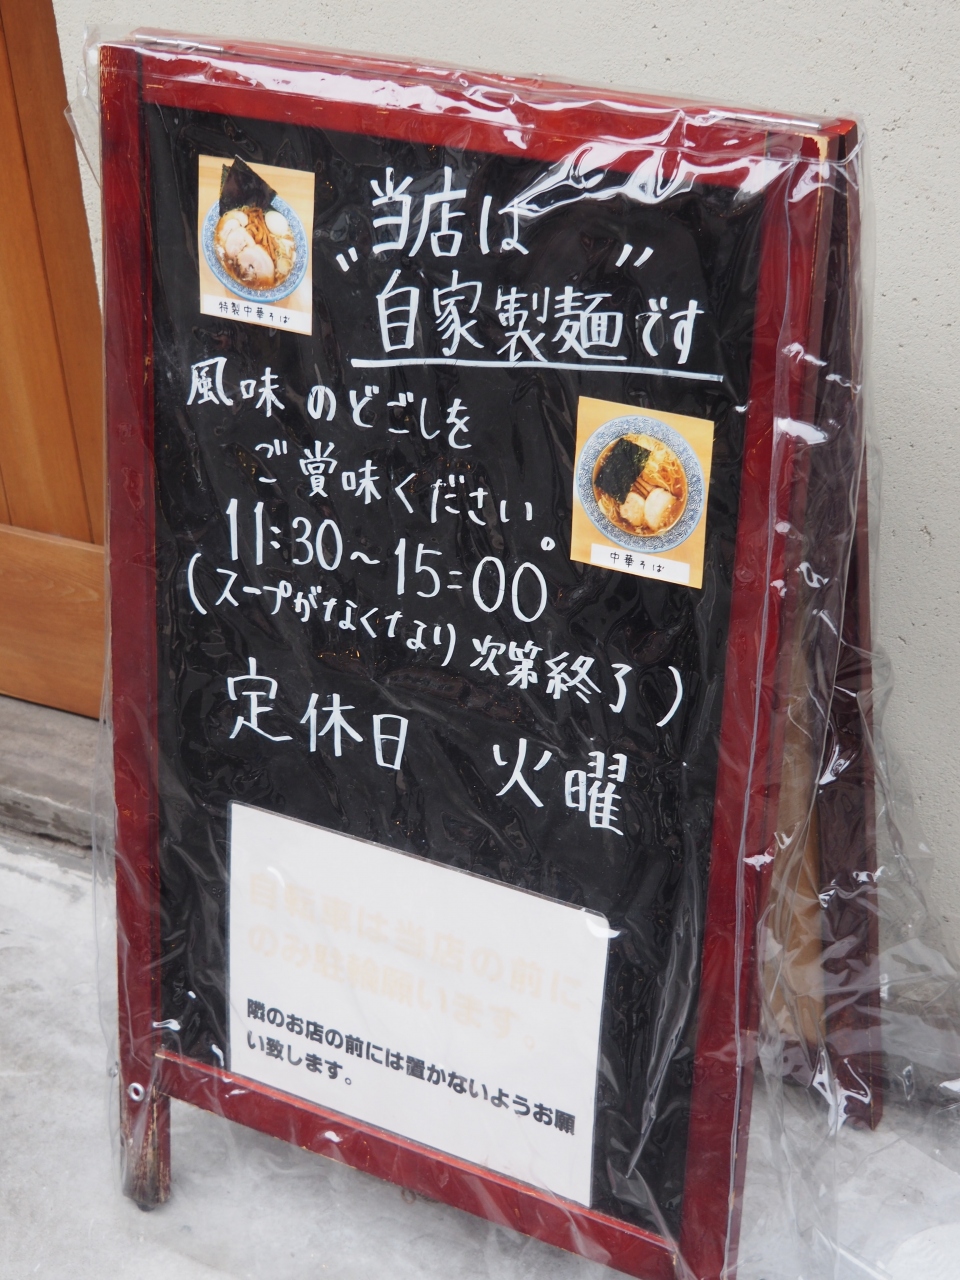 当店は
〝自家製麺〟です
特製中華そば
風味のどごしを
ご賞味ください。
中華そば
11:30〜15:00
(スープがなくなり次第終了)
定休日 火曜
自転車は当店の前に
のみ駐輪願います。
隣のお店の前には置かないようお願
い致します。